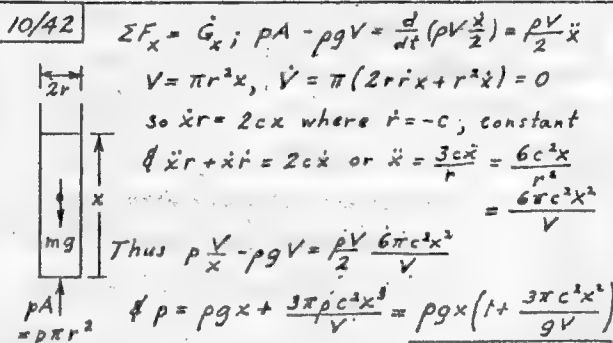 10/42
ΣF_x = Ġ_x ; pA - ρgV = d/dt (ρV ẋ/2) = ρV/2 ẍ
V = πr²x, V̇ = π(2rṙx + r²ẋ) = 0
so ẋr = 2cx where ṙ = -c, constant
& ẍr + ẋṙ = 2cẋ or ẍ = 3cẋ/r = 6c²x/r²
= 6πc²x²/V
Thus p V/x - ρgV = ρV/2 6πc²x²/V
& p = ρgx + 3πρc²x³/V = ρgx(1 + 3πc²x²/gV)
2r
x
mg
pA
= pπr²